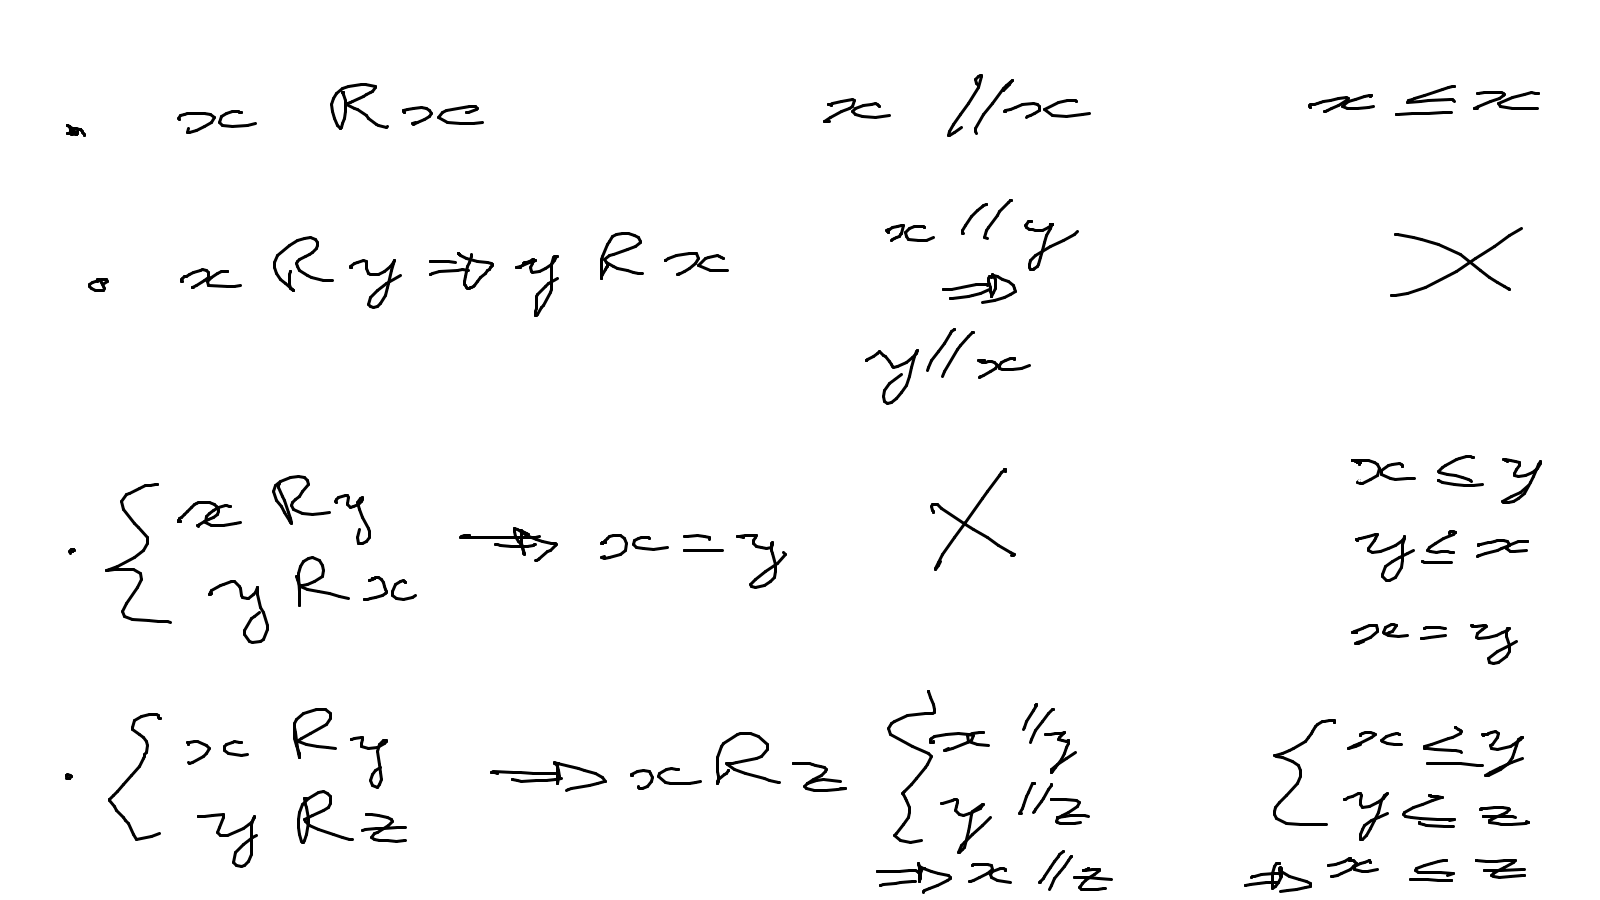 • x R x x // x x ≤ x
• x R y ⇒ y R x x // y ⇒ y // x ×
• { x R y y R x ⇒ x = y × x ≤ y y ≤ x x = y
• { x R y y R z ⇒ x R z { x // y y // z ⇒ x // z { x ≤ y y ≤ z ⇒ x ≤ z